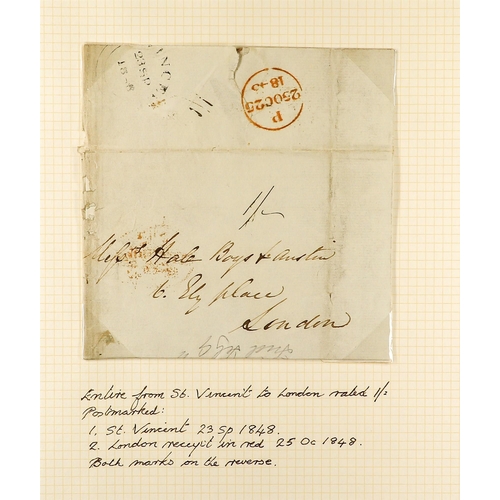 23 SP
1848
P
25 OC 25
1848
1/-
Messrs Hale Boys & Austin
6. Ely place
London
Entire from St. Vincent to London rated 1/=
Postmarked:
1. St. Vincent 23 Sp 1848.
2. London receipt in red 25 Oc 1848.
Both marks on the reverse.